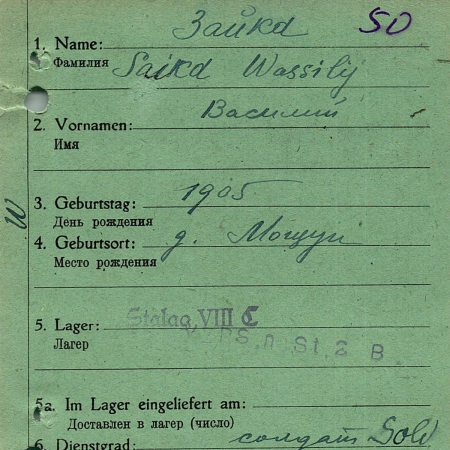 Зайка 50
1. Name:
Фамилия Saika Wassilij
Василий
2. Vornamen:
Имя
3. Geburtstag: 1905
День рождения
4. Geburtsort: д. Мощун
Место рождения
W
5. Lager: Stalag VIII C
Лагер St. 2 B.
5a. Im Lager eingeliefert am:
Доставлен в лагер (число)
6. Dienstgrad: солдат Sold